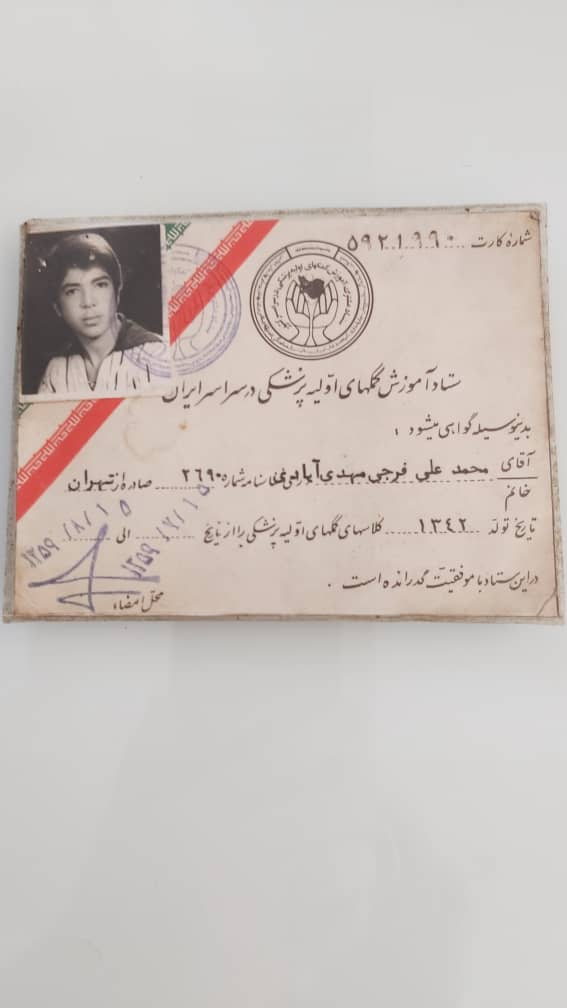 شماره کارت ۵۹۲۱۹۹۰
ستاد آموزش کمکهای اولیه پزشکی در سراسر ایران
بدینوسیله گواهی میشود :
آقای
خانم
محمد علی فرجی مهدی آبادی شناسنامه شماره ۲۶۹۰ صادره از تهران
تاریخ تولد ۱۳۴۲ کلاسهای کمکهای اولیه پزشکی را از تاریخ ۱۳۵۹/۷/۱۵ الی ۱۳۵۹/۸/۱۵
در این ستاد با موفقیت گذرانده است .
محل امضاء